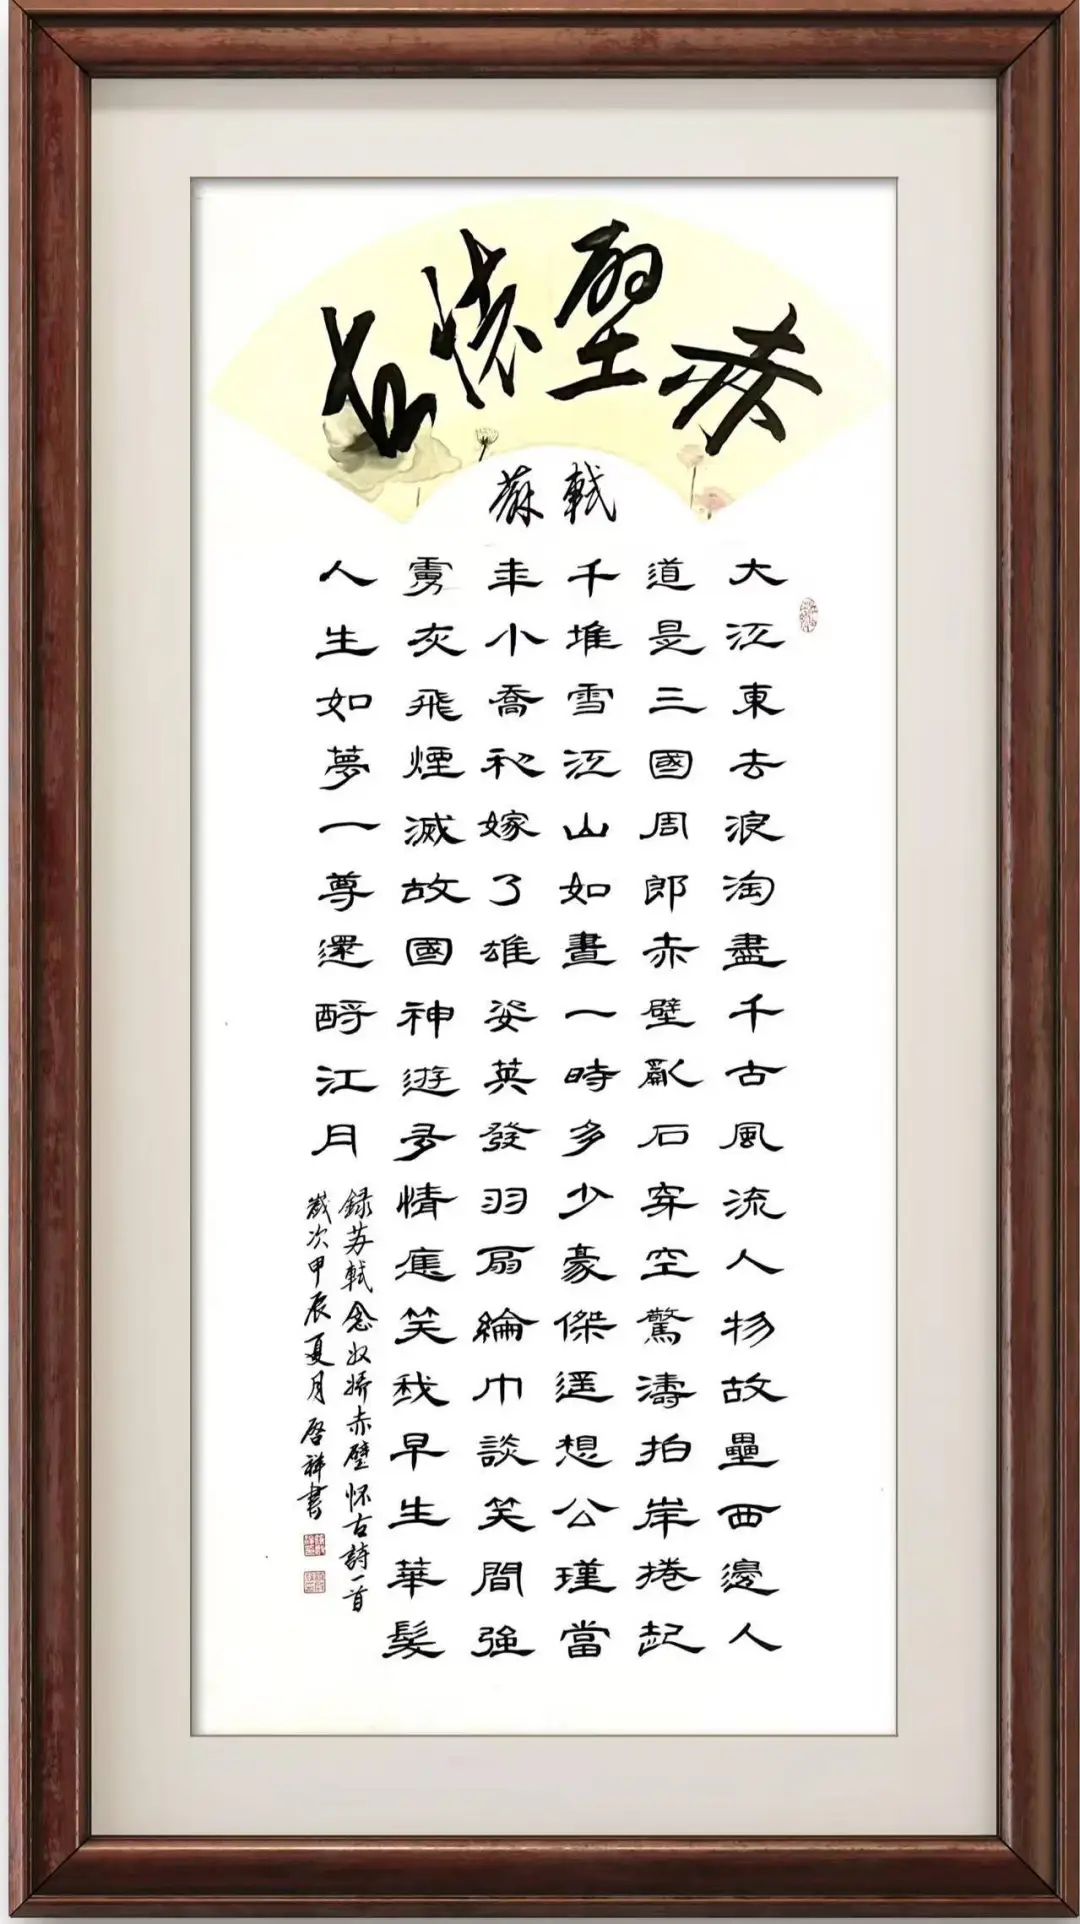 赤壁懷古
蘇軾
大江東去浪淘盡千古風流人物故壘西邊人
道是三國周郎赤壁亂石穿空驚濤拍岸捲起
千堆雪江山如畫一時多少豪傑遥想公瑾當
年小喬初嫁了雄姿英發羽扇綸巾談笑間強
虜灰飛煙滅故國神遊多情應笑我早生華髮
人生如夢一尊還酹江月
録苏軾念奴嬌赤壁怀古詩一首
歲次甲辰夏月啓祥書